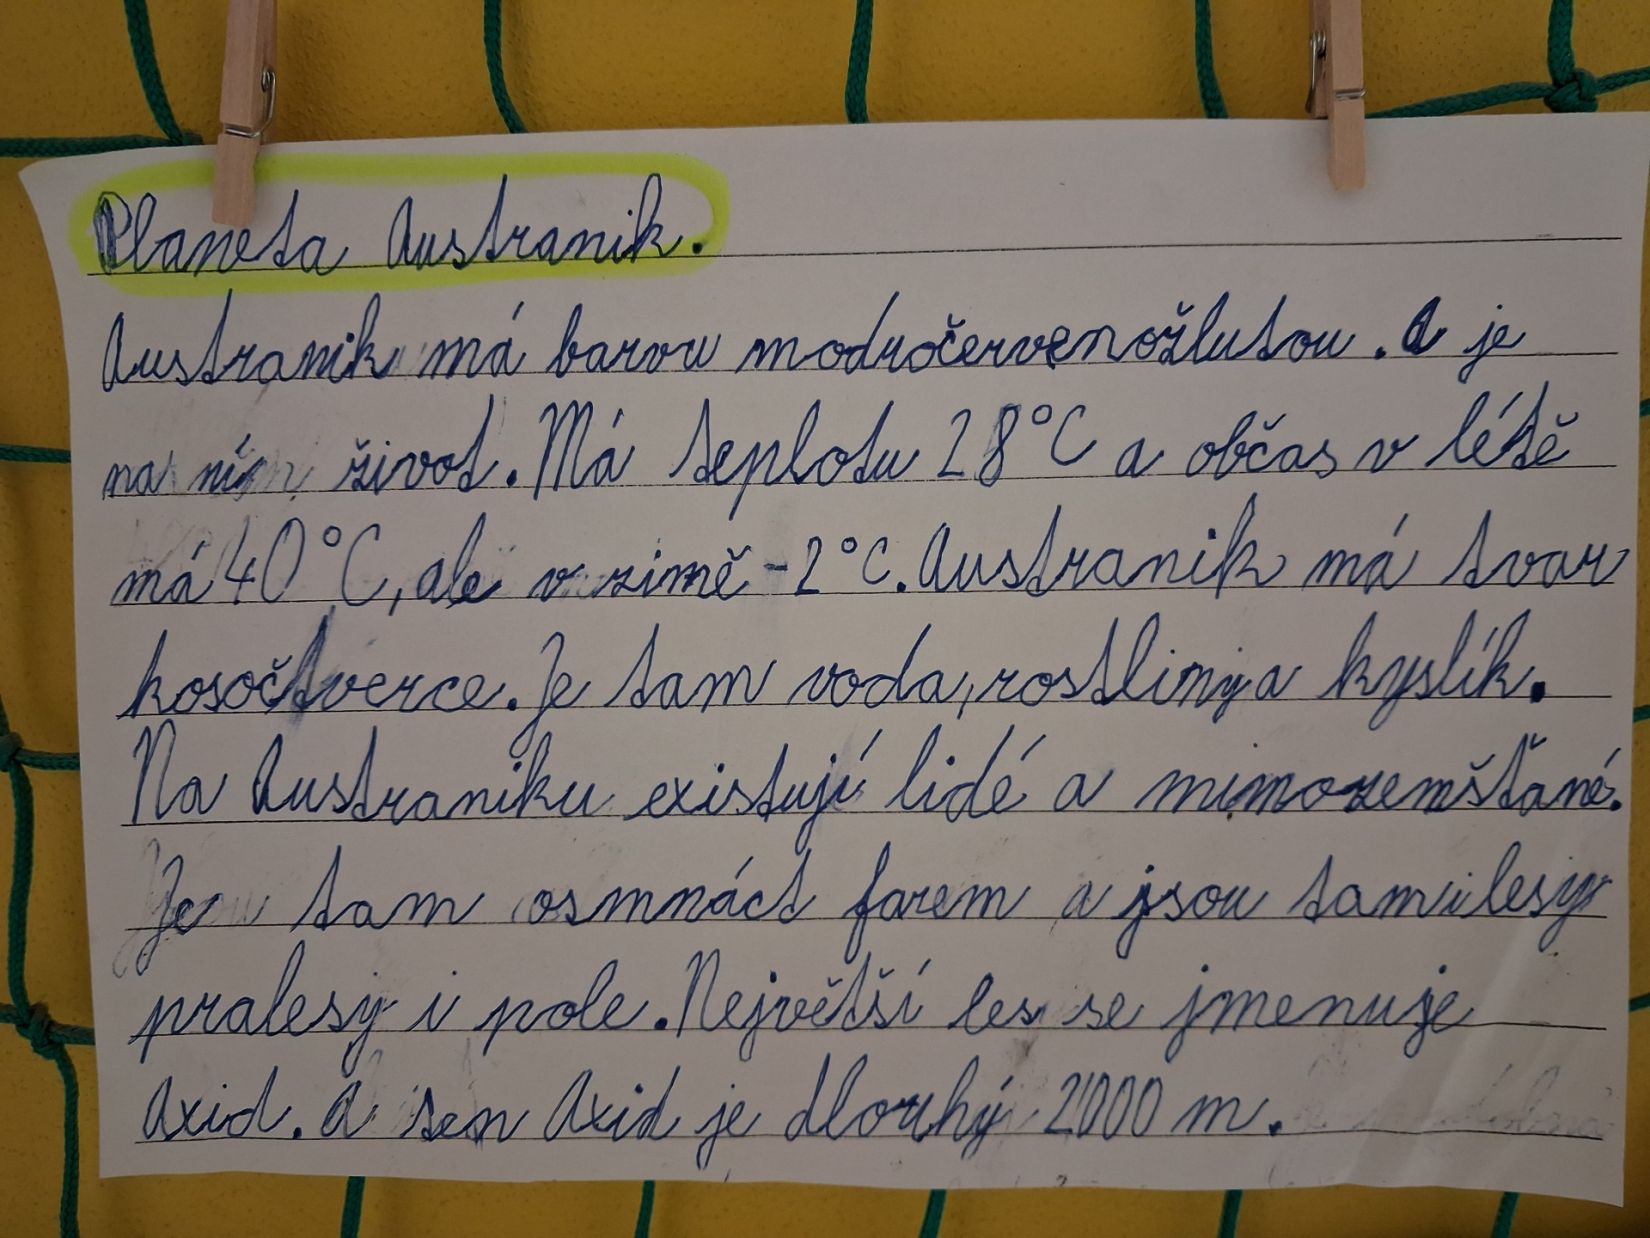 Planeta Austranik.
Austranik má barvu modročervenožlutou. A je
na něm život. Má teplotu 28°C a občas v létě
má 40°C, ale v zimě -2°C. Austranik má tvar
kosočtverce. Je tam voda, rostliny a kyslík.
Na Austraniku existují lidé a mimozemšťané.
Je tam osmnáct farem a jsou tam i lesy
pralesy i pole. Největší les se jmenuje
Axid. A ten Axid je dlouhý 2000 m.